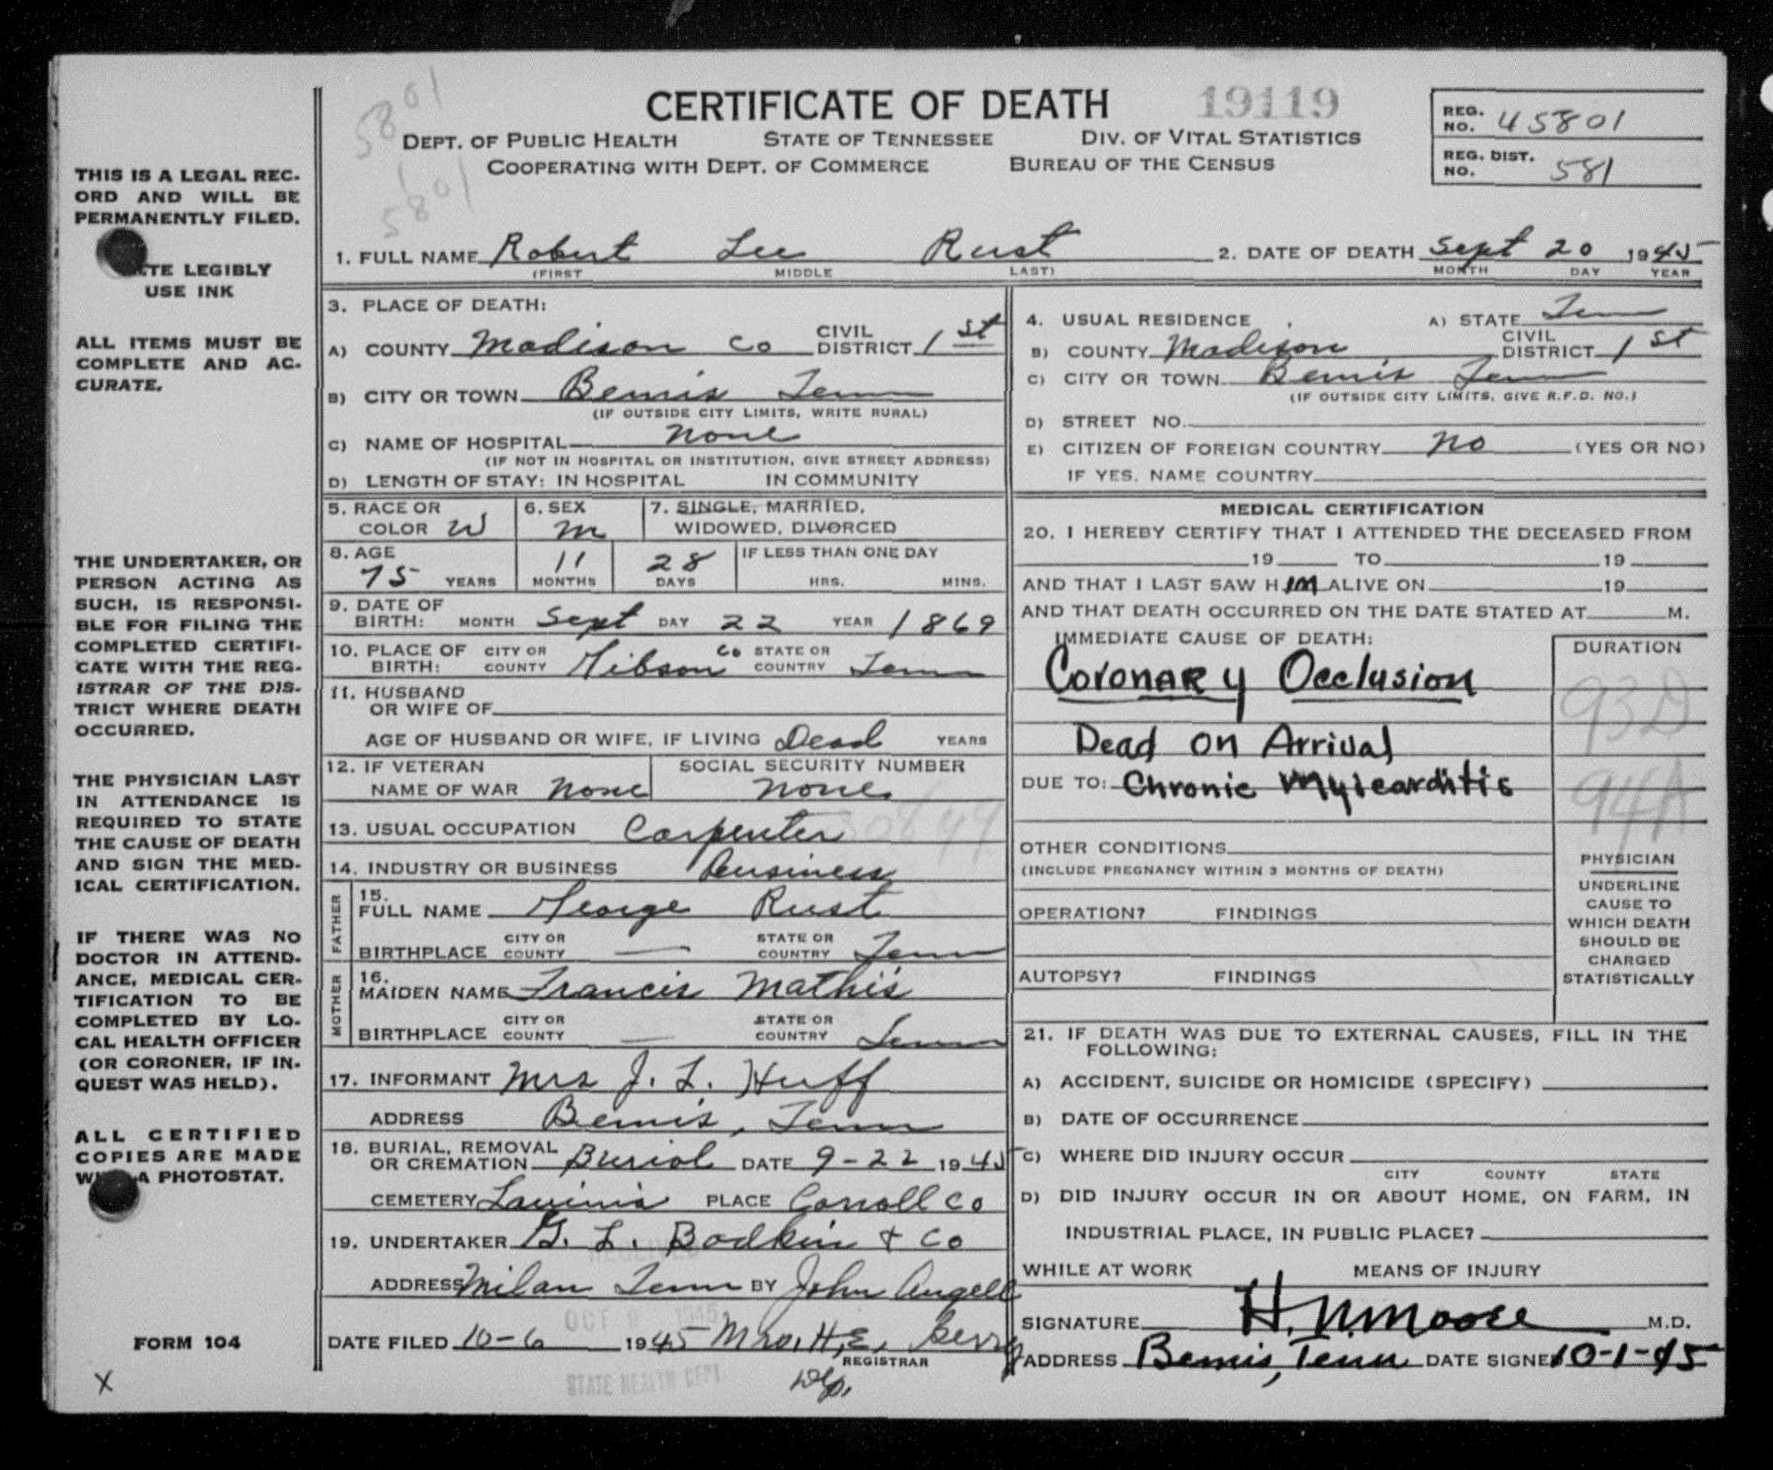 5801
5801
CERTIFICATE OF DEATH 19119
DEPT. OF PUBLIC HEALTH STATE OF TENNESSEE DIV. OF VITAL STATISTICS
COOPERATING WITH DEPT. OF COMMERCE BUREAU OF THE CENSUS
REG. NO. 45801
REG. DIST. NO. 581
THIS IS A LEGAL REC-
ORD AND WILL BE
PERMANENTLY FILED.
LEGIBLY
USE INK
ALL ITEMS MUST BE
COMPLETE AND AC-
CURATE.
THE UNDERTAKER, OR
PERSON ACTING AS
SUCH, IS RESPONSI-
BLE FOR FILING THE
COMPLETED CERTIFI-
CATE WITH THE REG-
ISTRAR OF THE DIS-
TRICT WHERE DEATH
OCCURRED.
THE PHYSICIAN LAST
IN ATTENDANCE IS
REQUIRED TO STATE
THE CAUSE OF DEATH
AND SIGN THE MED-
ICAL CERTIFICATION.
IF THERE WAS NO
DOCTOR IN ATTEND-
ANCE, MEDICAL CER-
TIFICATION TO BE
COMPLETED BY LO-
CAL HEALTH OFFICER
(OR CORONER, IF IN-
QUEST WAS HELD).
ALL CERTIFIED
COPIES ARE MADE
A PHOTOSTAT.
FORM 104
X
1. FULL NAME Robert Lee Rust 2. DATE OF DEATH Sept 20 1945
(FIRST MIDDLE LAST) MONTH DAY YEAR
3. PLACE OF DEATH:
A) COUNTY Madison Co CIVIL DISTRICT 1st
B) CITY OR TOWN Bemis Tenn
(IF OUTSIDE CITY LIMITS, WRITE RURAL)
C) NAME OF HOSPITAL None
(IF NOT IN HOSPITAL OR INSTITUTION, GIVE STREET ADDRESS)
D) LENGTH OF STAY: IN HOSPITAL IN COMMUNITY
5. RACE OR COLOR W 6. SEX M 7. SINGLE, MARRIED, WIDOWED, DIVORCED
8. AGE 75 YEARS 11 MONTHS 28 DAYS IF LESS THAN ONE DAY HRS. MINS.
9. DATE OF BIRTH: MONTH Sept DAY 22 YEAR 1869
10. PLACE OF BIRTH: CITY OR COUNTY Gibson Co STATE OR COUNTRY Tenn
11. HUSBAND OR WIFE OF
AGE OF HUSBAND OR WIFE, IF LIVING Dead YEARS
12. IF VETERAN NAME OF WAR None SOCIAL SECURITY NUMBER None
13. USUAL OCCUPATION Carpenter
14. INDUSTRY OR BUSINESS Business
FATHER
15. FULL NAME George Rust
BIRTHPLACE CITY OR COUNTY — STATE OR COUNTRY Tenn
MOTHER
16. MAIDEN NAME Francis Mathis
BIRTHPLACE CITY OR COUNTY — STATE OR COUNTRY Tenn
17. INFORMANT Mrs J. L. Huff
ADDRESS Bemis, Tenn
18. BURIAL, REMOVAL OR CREMATION Burial DATE 9-22 1945
CEMETERY Lavinia PLACE Carroll Co
19. UNDERTAKER G. L. Bodkin + Co
ADDRESS Milan Tenn BY John Angell
OCT 1945
DATE FILED 10-6 1945 Mrs. H. E. Berry
REGISTRAR
Dep.
STATE HEALTH DEPT
4. USUAL RESIDENCE A) STATE Tenn
B) COUNTY Madison CIVIL DISTRICT 1st
C) CITY OR TOWN Bemis Tenn
(IF OUTSIDE CITY LIMITS, GIVE R.F.D. NO.)
D) STREET NO.
E) CITIZEN OF FOREIGN COUNTRY No (YES OR NO)
IF YES, NAME COUNTRY
MEDICAL CERTIFICATION
20. I HEREBY CERTIFY THAT I ATTENDED THE DECEASED FROM
19 TO 19
AND THAT I LAST SAW HIM ALIVE ON 19
AND THAT DEATH OCCURRED ON THE DATE STATED AT M.
IMMEDIATE CAUSE OF DEATH: DURATION
Coronary Occlusion 93D
Dead on Arrival
DUE TO: Chronic Myicarditis 94A
OTHER CONDITIONS
(INCLUDE PREGNANCY WITHIN 3 MONTHS OF DEATH)
OPERATION? FINDINGS
AUTOPSY? FINDINGS
PHYSICIAN
UNDERLINE
CAUSE TO
WHICH DEATH
SHOULD BE
CHARGED
STATISTICALLY
21. IF DEATH WAS DUE TO EXTERNAL CAUSES, FILL IN THE
FOLLOWING:
A) ACCIDENT, SUICIDE OR HOMICIDE (SPECIFY)
B) DATE OF OCCURRENCE
C) WHERE DID INJURY OCCUR
CITY COUNTY STATE
D) DID INJURY OCCUR IN OR ABOUT HOME, ON FARM, IN
INDUSTRIAL PLACE, IN PUBLIC PLACE?
WHILE AT WORK MEANS OF INJURY
SIGNATURE H. N. Moore M.D.
ADDRESS Bemis, Tenn DATE SIGNED 10-1-45